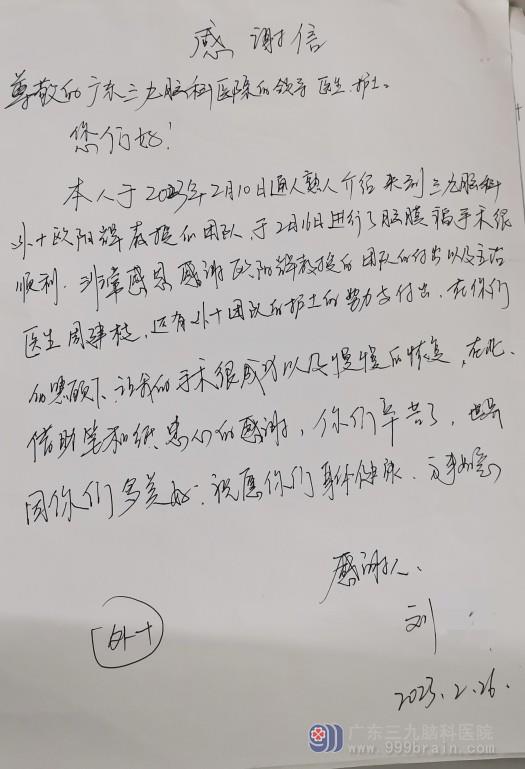 感谢信
尊敬的广东三九脑科医院的领导 医生、护士。
您们好！
本人于2023年2月10日通人熟人介绍来到三九脑科
外十欧阳辉教授的团队，于2月16日进行了脑膜瘤手术很
顺利. 非常感恩感谢欧阳辉教授的团队的付出以及主治
医生周 还有外十团队的护士的努力与付出. 在你们
的照顾下、让我的手术很成功以及慢慢的恢复，在此.
借助笔和纸 的感谢，你们辛苦了，世界
因你们多美好. 祝愿你们身体健康、万事如意
感谢人、
刘
外十
2023.2.26.
广东三九脑科医院
www.999brain.com